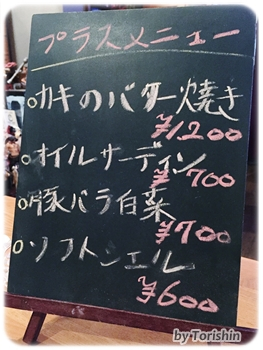 プラスメニュー
○カキのバター焼き
¥1200
○オイルサーディン
¥700
○豚バラ白菜
¥700
○ソフトシェル
¥600
by Torishin